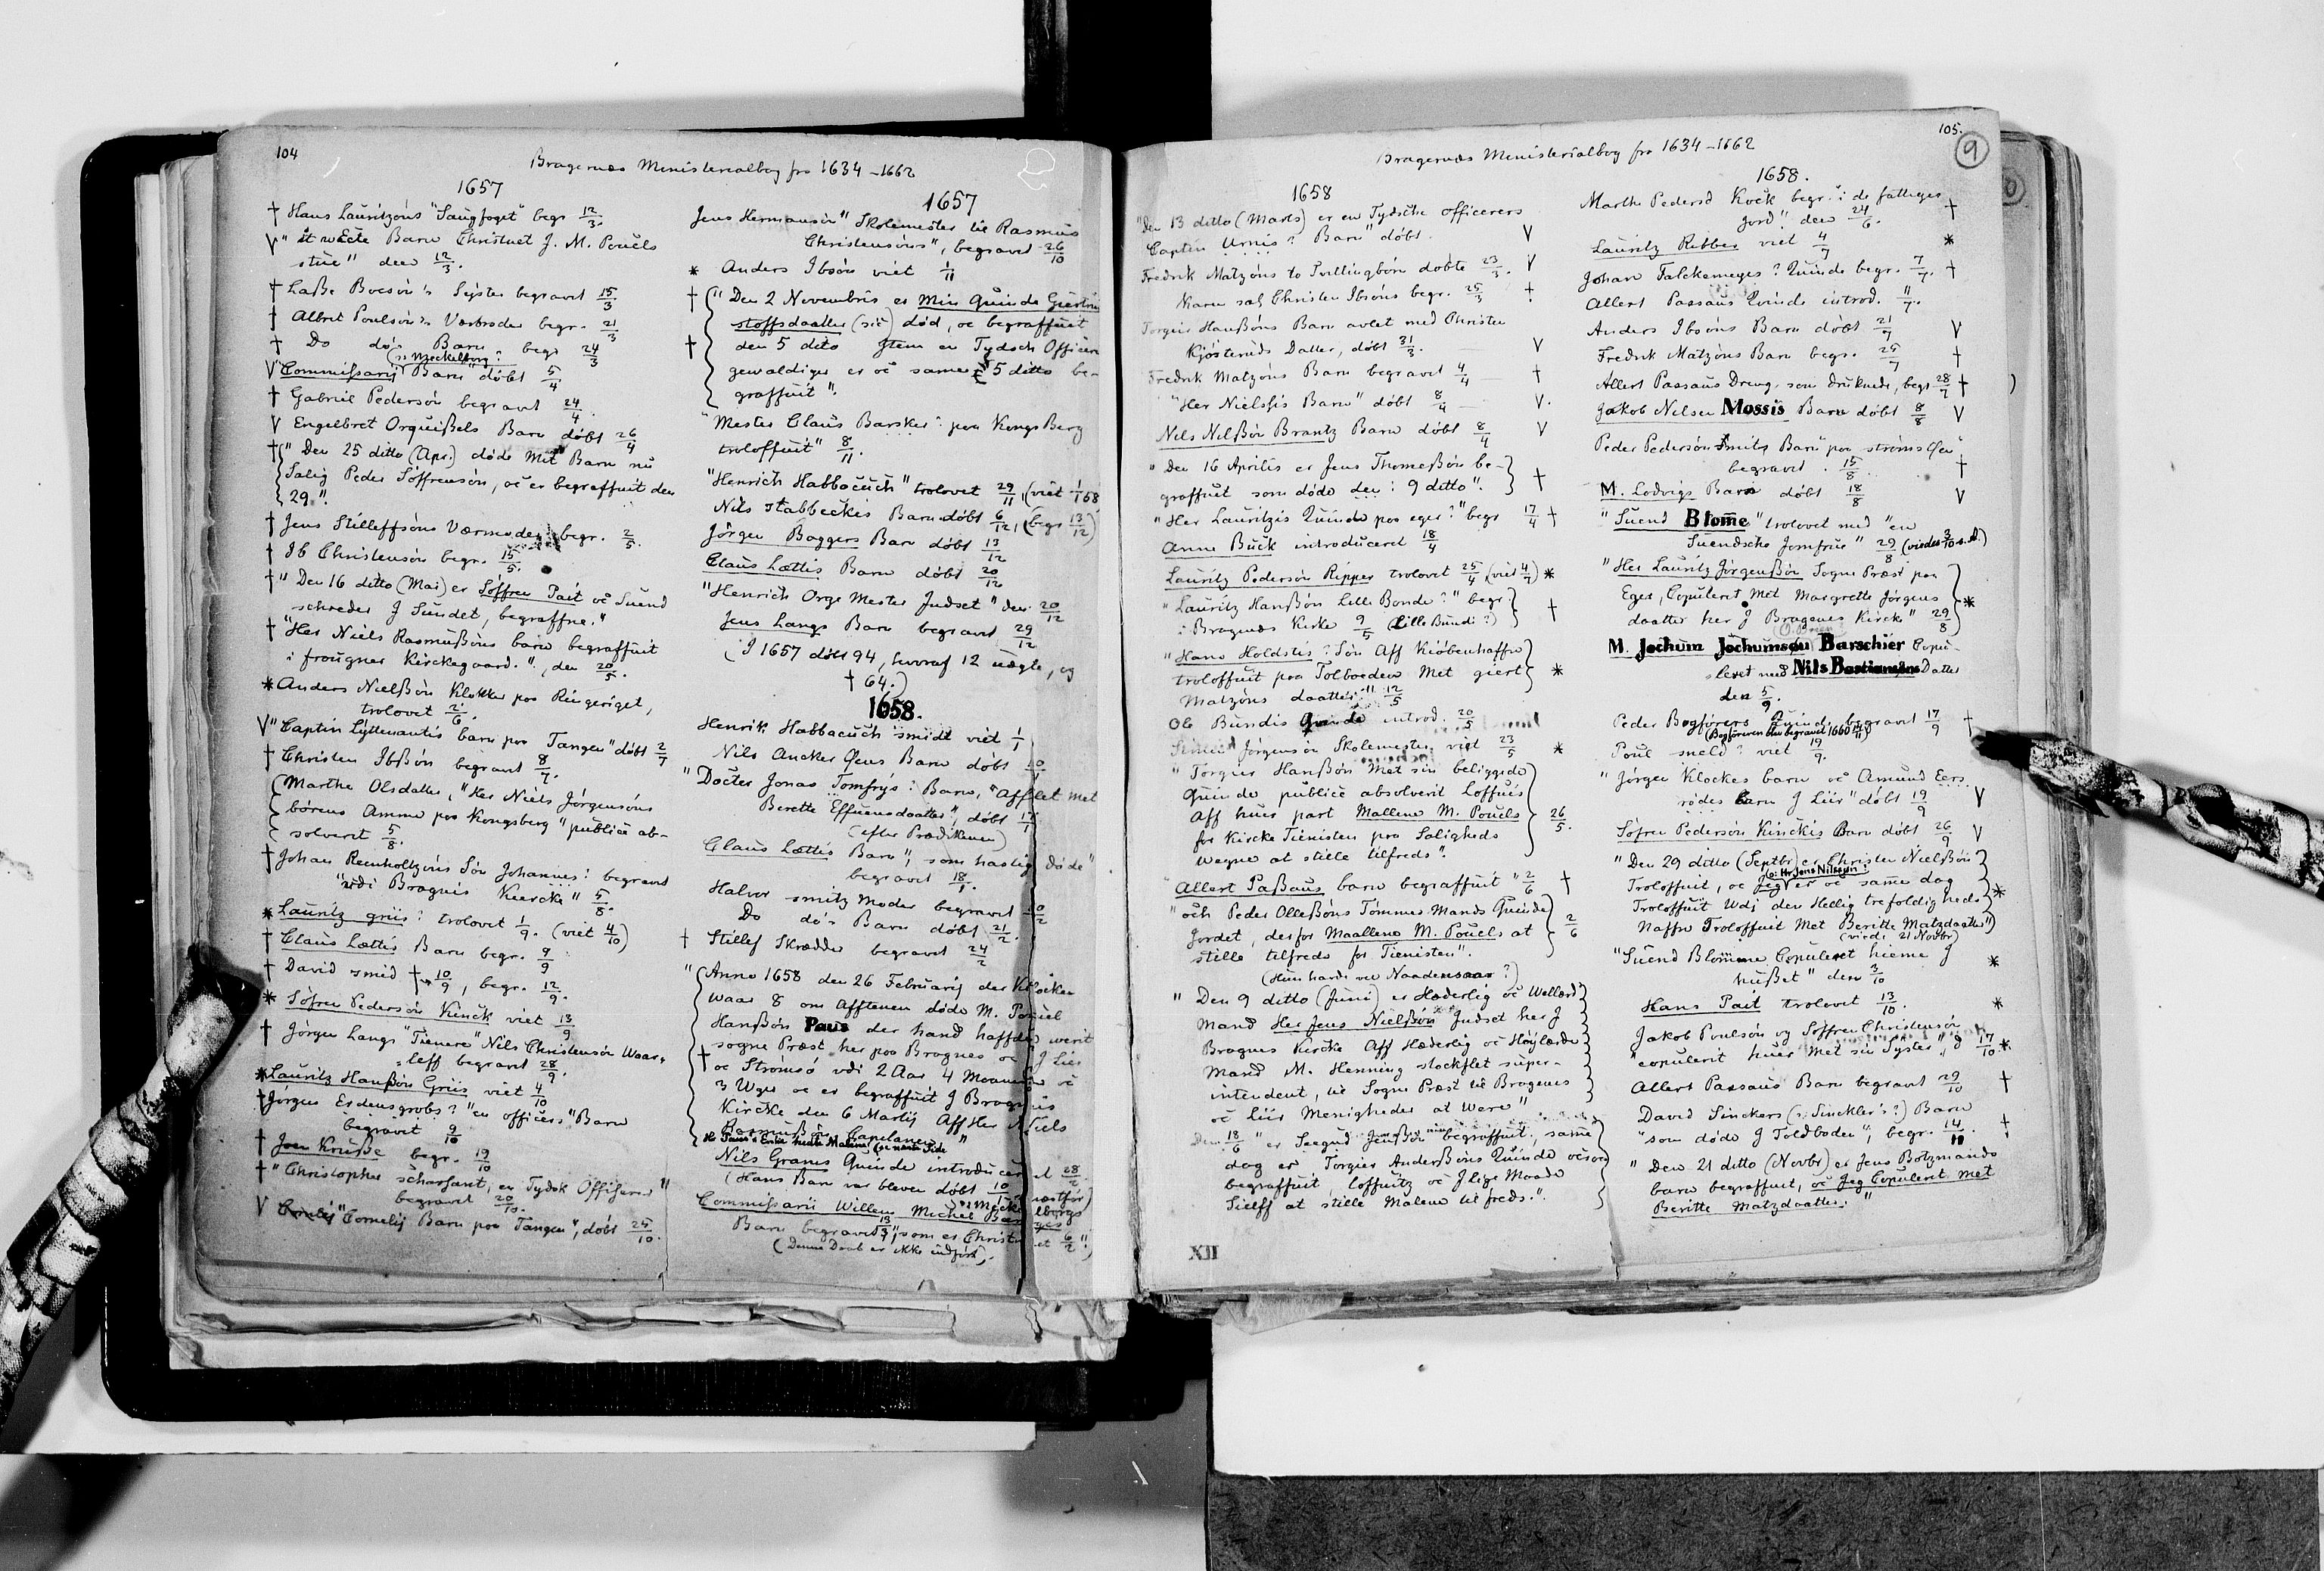 104
Bragernæs Ministerialbog fra 1634-1662
1657
† Hans Lauritzöns "Saugfoget" begr 12/3.
V " it wæcte Barn Christnet J. M. Pouels
stue" den 12/3.
† Laße Boesön's Syster begravet 15/3
† Albret Poulsön's Værbroder begr. 21/3
† Do do's Barn begr 24/3
(Meckelborg?
V Commissarij Barn" döbt 5/4
† Gabriel Pedersön begravet 24/4.
V Engelbret Orquißels Barn döbt 26/4
† " Den 25 ditto (Apr.) döde Mit Barn nu
Salig Peder Söffrensön, oc er begraffuit den
29."
† Jens Stilleffsöns Værmoder begr. 2/5.
† Ib Christensön begr. 15/5.
† " Den 16 ditto (Mai) er Söffren Pait oc Suend
schreder J Sundet, begraffne."
† "Her Niels Rasmußöns barn begraffuit
i frougner Kirckegaard.", den 20/5.
* Anders Nielßön Klokker paa Ringeriget,
trolovet 2/6.
V "Captin Lyttenantis barn paa Tangen" döbt 2/7
† Christen Ibßön begravet 8/7.
Marthe Olsdatter, "Her Niels Jörgensöns
börens Amme paa Kongsberg" publicè ab-
solveret 5/8.
† Johan Reinholtzöns Sön Johannes: begravet
"udi Bragnis Kiercke" 5/8.
* Lauritz griis: trolovet 1/9. (viet 4/10)
† Claus Lættis Barn begr. 9/9
† David smid † 10/9, begr. 12/9.
* Söfren Pedersön Kinck viet 13/9
† Jörgen Langs "Tienere" Nils Christensön Waar-
leff begravet 28/9.
* Lauritz Hanßön Griis viet 4/10
† Jörgen Erdensgrobs? "en officers" Barn
begravet 9/10
† Joen Kruße begr. 19/10
† "Christopher scharfant, en Tydsk Officerer"
begravet 20/10.
V "Cornelij Barn paa Tangen", döbt 25/10.
1657
Jens Hermansön "Skolemester til Rasmus
Christensöns", begravet 26/10
* Anders Ibsön viet 1/11
† " Den 2 Novembris er Min Quinde Giertru
stoffsdaatter (sic) död, oc begraffuit
† den 5 dito Jtem en Tydsch Officer
gewaldiger er oc samme 5 ditto be-
graffuit".
"Mester Claus Barsker: paa Kongs Berg
troloffuit" 8/11.
"Henrich Habbacuch" trolovet 29/11, (viet 1/1 58
Nils Stabbeckis Barn döbt 6/12, (begr 13/12)
Jörgen Baggers Barn döbt 13/12
Claus Lættis Barn döbt 20/12
"Henrich Orge Mester Jndset" den 20/12
Jens Langs Barn begravet 29/12
(I 1657 döbt 94, hvoraf 12 uægte, og
† 64.)
1658.
Henrik Habbacuch smidt viet 1/1
Nils Ancker Qens Barn döbt 10/1
"Docter Jonas Tomfrys: Barn, "Afflet met
Berette Effuensdaatter", döbt 17/1
(efter Prædikenen)
Claus Lættis Barn", som hastig döde"
begravet 18/1.
Halvor smitz Moder begravet 10/2
Do do's Barn döbt 21/2.
† Stillef Skrædder begravet 24/2
" Anno 1658 den 26 Februarij der Klocken
waar 8 om Afftenen döde M. Pouel
Hanßön Paus der hand haffde werit
sogne Præst her paa Bragnes oc J Lier
† oc Strömsö vdi 2 Aar 4 Maaneder oc
3 Wger oc er begraffuit J Bragenis
Kircke den 6 Martij Aff Her Niels
Rasmußön, Capelanen"
Nils Grams Quinde introduceret 28/2
(Hans Barn var bleven döbt 10/1 næstför)
Commissarii Willem Michel Becks
Barn begravet 13/3, "som er Christnet 6/2".
(Denne Daab er ikke indfört).
105.
9
Bragernæs Ministerialbog fra 1634-1662
1658
"Den 13 ditto (Marts) er en Tydsche officerers
Captin Urnis? Barn" döbt. V
Fredrik Matzöns to Tvillingbörn döbte 23/3. V
Karen sal Christen Ibsöns begr. 25/3 †
Torgier Hanßöns Barn avlet med Christen
Kjösteruds Datter, döbt 31/3. V
Fredrik Matzöns Barn begravet 4/4 †
"Her Nielssis Barn" döbt 8/4 V.
Nils Nilßön Brantz Barn döbt 8/4 V
" Den 16 Aprilis er Jens Thomeßön be-
graffuet som döde den: 9 ditto". †
"Her Lauritzis Quinde paa eger?" begr 17/4 †
Anne Buck introduceret 18/4
Lauritz Pedersön Ripper trolovet 25/4 (viet 4/7) *
"Lauritz Hanßön Lille Bonde?" begr.
i Bragenæs Kirke 9/5 (Lille Bundi?) †
"Hans Holdstis? Sön Aff Kiöbenhaffn
troloffuit paa Tolboeden Met giert *
Matzöns daatter" 12/5
Ole Bundis Quinde introd. 20/5
Jörgensön Skolemester viet 23/5 *
" Torgier Hanßön Met sin beliggede
Quinde publicè absolverit Loffuis
Aff huer part Mallene M. Pouels 26/5.
for Kircke Tienisten paa Saligheds
wegne at stille tilfreds".
Allert Paßaus barn begraffuit "2/6 †
"och Peder Olleßöns Tömmer Mands Quinde
Jordet, derfor Maallene M. Pouels at 2/6
stille tilfreds for Tienisten".
(Hun havde vel Naadensaar?)
" Den 9 ditto (Juni) er Hæderlig oc Wellærd
Mand Her Jens Nielßön Jndset her J
Bragnes Kircke Aff Hæderlig oc Höylærde
Mand M. Henning stockflet super-
intendent, til Sogne Præst til Bragenes
oc Liir Menigheder at Were"
Den 18/6 "er Seegud Jenßön begraffuit, samme
dag er Torgier Anderßöns Quinde ocsaa
begraffuit, loffuitz oc Jlige Maade
Sielff at stille Malene til freds."
XII
1658.
Marthe Pedersd Kock begr. "i de fattiges
Jord" den 24/6. †
Lauritz Ribber viet 4/7 *
Johan Falckemeyes? Quinde begr. 7/7. †
Allert Passaus Qvinde introd. 11/7.
Anders Ibsöns Barn döbt 21/7 V
Fredrik Matzöns Barn begr. 25/7 †
Allert Passaus Dreng, som druknede, begr 28/7 †
Jakob Nilsen Mossis Barn döbt 8/8 V
Peder Pedersön Smits Barn "paa strömsöen"
begravet. 15/8 †
M. Lodvigs Barn döbt 18/8 V
"Suend Blome" trolovet med "en
Suendsche Jomfrue" 29/8 (viedes 3/10 s. A.)
"Her Lauritz Jörgenßön Sogne Præst paa
Eger, Copuleret Met Margrette Jörgens *
daatter her J Bragenes Kirck" 29/8
M. Jochum Jochumsen Barschier Copu-
leret med Nils Bastiansöns Datter
den 5/9.
Peder Bogförers Quinde begravet 17/9 †
(Bogföreren blev begravet 1660 14/11)
Poul sneld? viet 19/9.
"Jörgen Klockes barn oc Amund Eers
rödes barn J Liir" döbt 19/9 V
Söfren Pedersön Kinckis Barn döbt 26/9 V
"Den 29 ditto (Septbr) er Christen Nielßön
(o: Hr. Jens Nilsøn:)
Troloffuit, oc Jeg er oc samme dag
Troloffuit Udj den Hellig trefoldigheds *
Naffn Troloffuit Met Beritte Matzdaatter"
(viede 21 Novbr)
"Suend Blomme Copuleret hieme J
hußet" den 3/10 *
Hans Pait trolovet 13/10. *
Jakob Poulsön og Söffren Christensön
"copulerit huer met sin Syster" 17/10. *
Allert Passaus Barn begravet 29/10 †
David Sinckers (: Sinckler's?) Barn
"som döde J Toldboden", begr. 14/11 †
" Den 21 ditto (Novbr) er Jens Botzmands
barn begraffuet, oc Jeg Copuleret met
Beritte Matzdaatter."